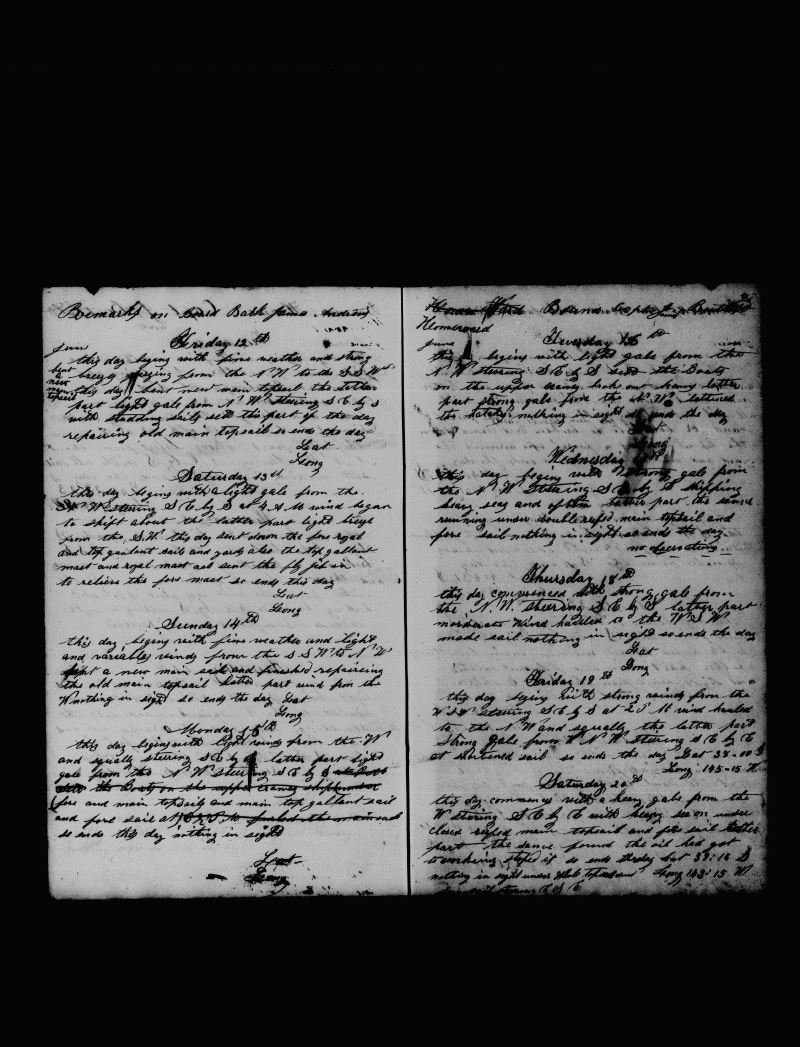 Remarks on board Bark James Andrews
Friday 12th
June
this day begins with fine weather and strong
bent a new main topsail
breeze varying from the N W to the S S W
this day bent new main topsail the latter
part light gale from N W steering S E by S
with studding sails sets this part of the day
repairing old main topsail so ends the day
Lat
Long
Saturday 13th
this day begins with a light gale from the
N W steering S E by S at 4 A M wind began
to shift about the latter part light breeze
from the S.W. this day sent down the fore royal
and top ganlant sail and yards also the top gallant
mast and royal mast and sent the fly jib in
to relieve the fore mast so ends this day
Lat
Long
Sunday 14th
this day begins with fine weather and light
and variable winds from the S S W to N W
a new main sail and finished repairing
the old main topsail latter part wind from the
W nothing in sight so ends the day Lat
Long
Monday 15th
this day begins with light winds from the W
and squally steering S E by latter part light
gale from the N W steering S E by S
the Boats on the upper cranes
fore and main topsails and main top gallant sail
and fore sail at furled the mainsail
so ends this day nothing in sight
Lat
Long
Bound
Homeward
Tuesday 16th
June
this begins with light gale from the
N. W steering S E by S the Boats
on the upper cranes latter
part strong gale from the N. W.
the nothing in sight so ends the day
Lat
Long
Wednesday
this day begins with strong gale from
the N. W steering S E by E shipping
heavy sea and often latter part the same
running under double refed main topsail and
fore sail nothing in sight so ends the day
no observations
Thursday 18th
this day commenced with strong gale from
the N. W. steering S E by S latter part
morderate wind hauled to the W S W
made sail nothing in sight so ends the day
Lat
Long
Friday 19th
this day begins with strong winds from the
W S W steering S E by S at 2 wind hauled
to the N W and squally the latter part
strong gale from W N W steering S E by E
at shortened sail so ends the day Lat 38-00 S
Long 145-15 W
Saturday 20th
this day commences with a heavy gale from the
W stering S E by E with heavy sea on under
closed refed main topsail and fore sail latter
part the same found the oil had got
to working stoped it so ends the day Lat
nothing in sight under whole topsail Long 143:15 W